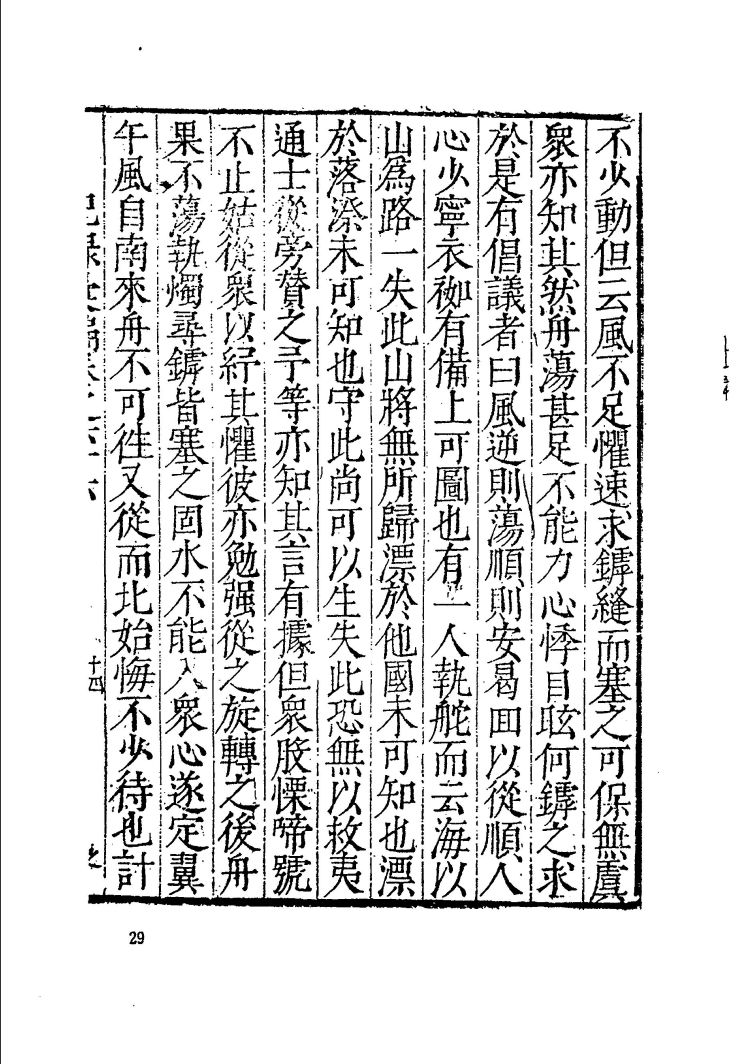 不少動但云風不足懼速求罅縫而塞之可保無虞
衆亦知其然舟蕩甚足不能力心悸目眩何罅之求
於是有倡議者曰風逆則蕩順則安曷回以從順人
心少寧衣袽有備上可圖也有一人執舵而云海以
山爲路一失此山將無所歸漂於他國未可知也漂
於落漈未可知也守此尚可以生失此恐無以救夷
通士從旁贊之予等亦知其言有據但衆股慄啼號
不止姑從衆以紓其懼彼亦勉强從之旋轉之後舟
果不蕩執燭尋罅皆塞之固水不能入衆心遂定翼
午風自南來舟不可徃又從而北始悔不少待也計
紀錄彙編卷之六十六
十四
29